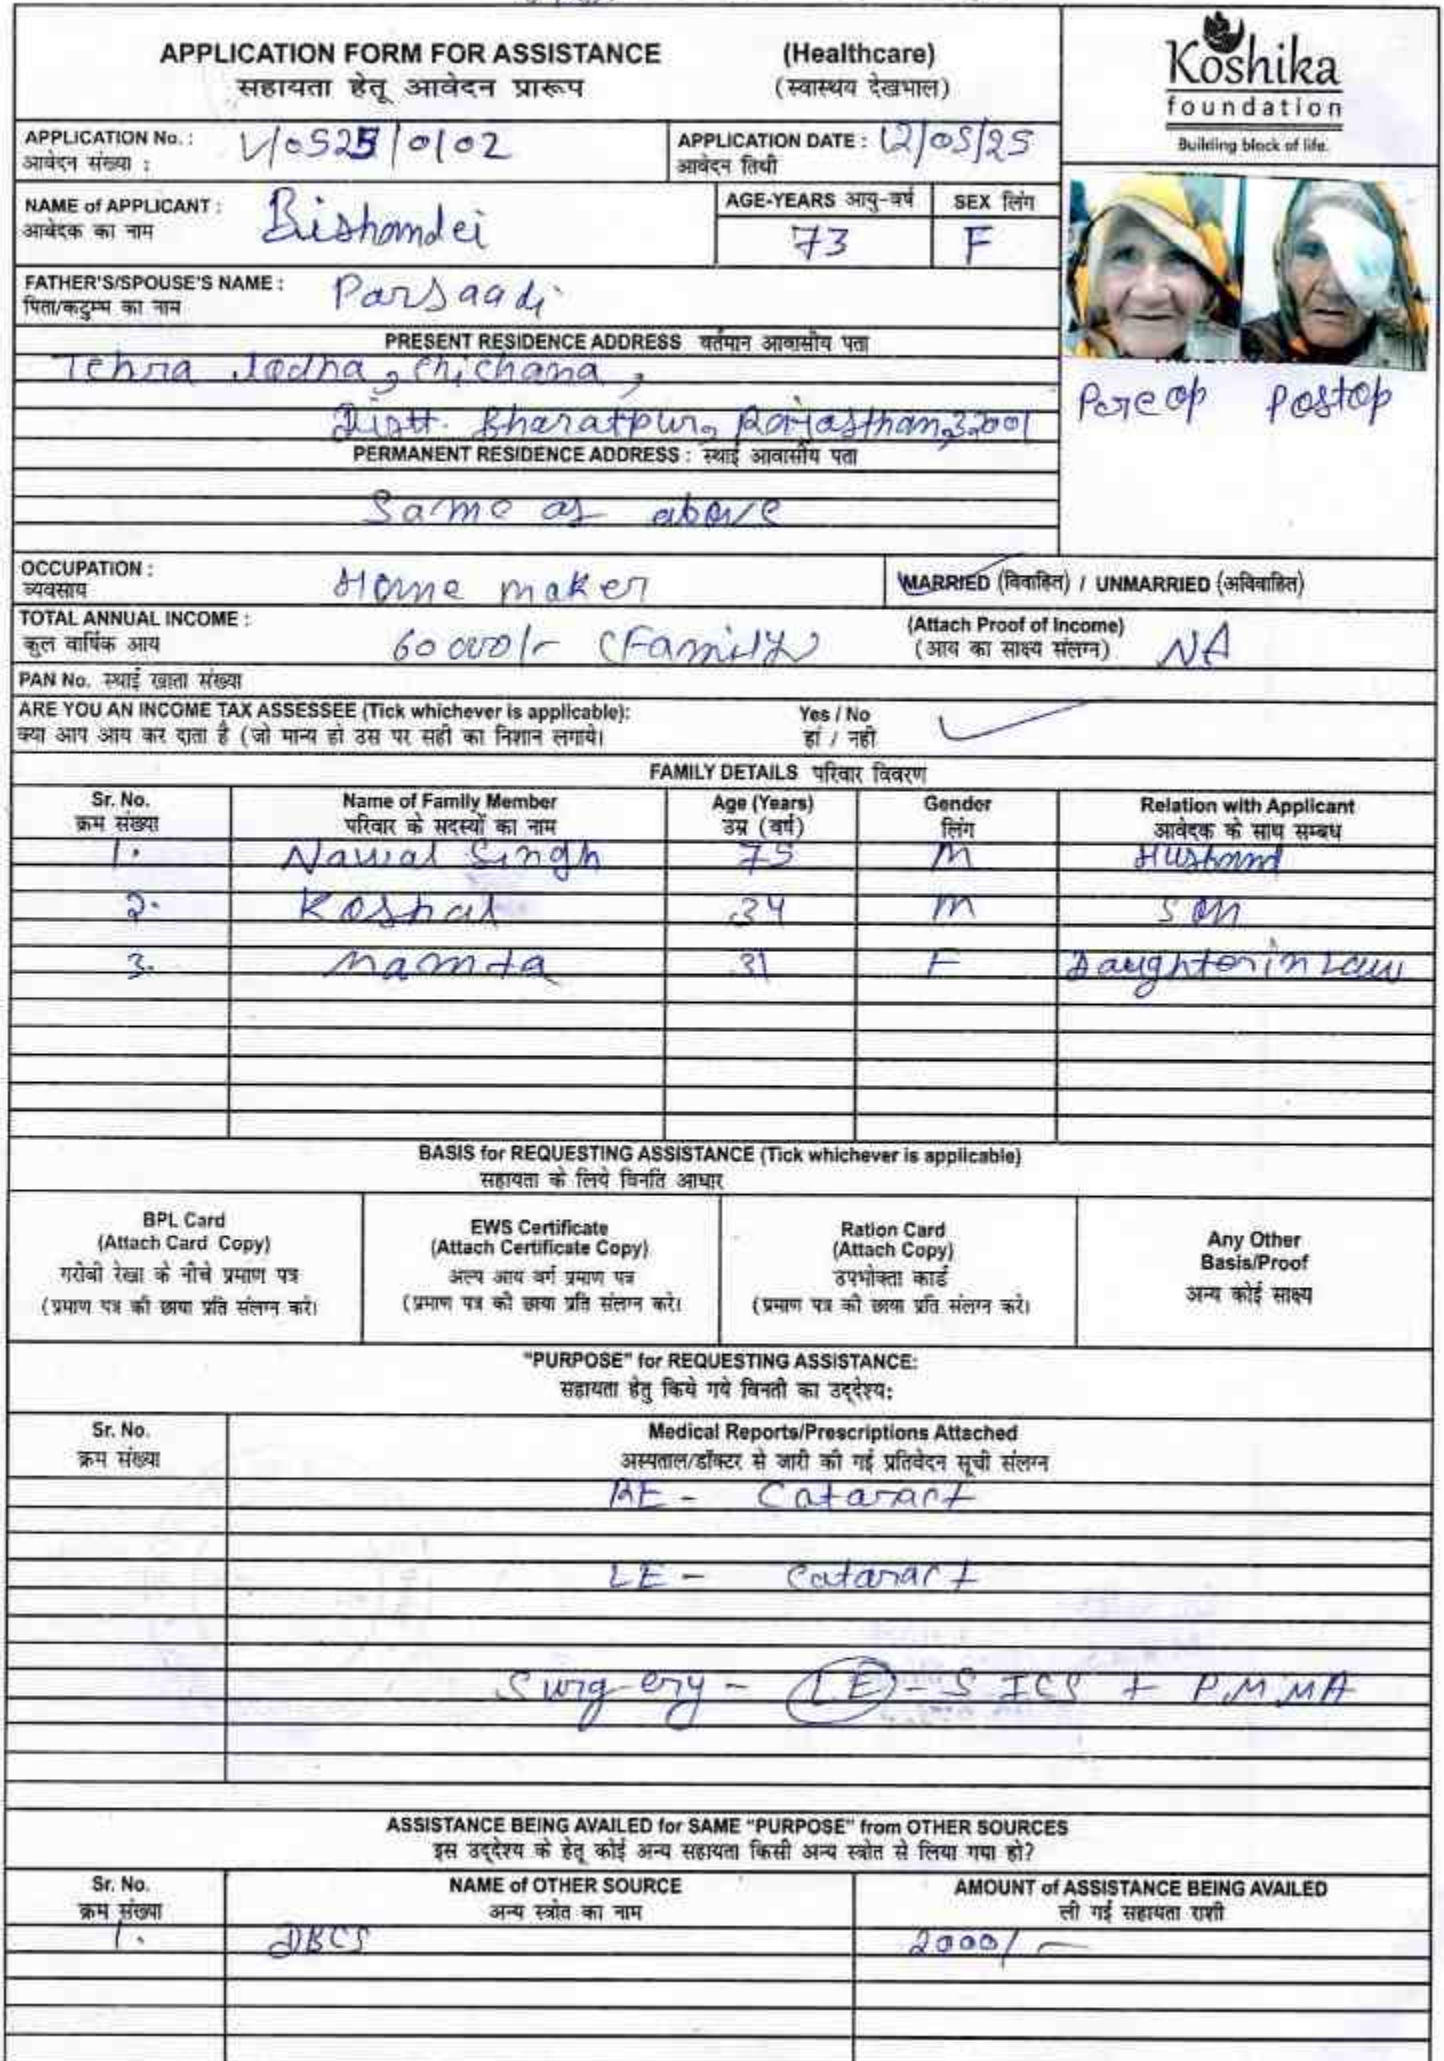 APPLICATION FORM FOR ASSISTANCE (Healthcare)
सहायता हेतू आवेदन प्रारूप (स्वास्थय देखभाल)
Koshika
foundation
Building block of life.
APPLICATION No. : V/0525/0102
आवेदन संख्या :
APPLICATION DATE : 12/05/25
आवेदन तिथी
NAME of APPLICANT : Bishandei
आवेदक का नाम
AGE-YEARS आयु-वर्ष 73
SEX लिंग F
FATHER'S/SPOUSE'S NAME : Parsaadi
पिता/कटुम्ब का नाम
Preop Postop
PRESENT RESIDENCE ADDRESS वर्तमान आवासीय पता
Tehra lodha, chichana,
Distt. Bharatpur, Rajasthan,
PERMANENT RESIDENCE ADDRESS : स्थाई आवासीय पता
Same as above
OCCUPATION : Home maker
व्यवसाय
MARRIED (विवाहित) / UNMARRIED (अविवाहित)
TOTAL ANNUAL INCOME : 60000/- (Family)
कुल वार्षिक आय
(Attach Proof of Income) NA
(आय का साक्ष्य संलग्न)
PAN No. स्थाई खाता संख्या
ARE YOU AN INCOME TAX ASSESSEE (Tick whichever is applicable): Yes / No
क्या आप आय कर दाता है (जो मान्य हो उस पर सही का निशान लगाये। हां / नही
FAMILY DETAILS परिवार विवरण
Sr. No. Name of Family Member Age (Years) Gender Relation with Applicant
क्रम संख्या परिवार के सदस्यों का नाम उम्र (वर्ष) लिंग आवेदक के साथ सम्बध
1. Nawal Singh 75 M Husband
2. Koshal 34 M Son
3. Mamta 31 F Daughter in Law
BASIS for REQUESTING ASSISTANCE (Tick whichever is applicable)
सहायता के लिये विनति आधार
BPL Card
(Attach Card Copy)
गरीबी रेखा के नीचे प्रमाण पत्र
(प्रमाण पत्र की छाया प्रति संलग्न करे।
EWS Certificate
(Attach Certificate Copy)
अल्प आय वर्ग प्रमाण पत्र
(प्रमाण पत्र की छाया प्रति संलग्न करे।
Ration Card
(Attach Copy)
उपभोक्ता कार्ड
(प्रमाण पत्र की छाया प्रति संलग्न करे।
Any Other
Basis/Proof
अन्य कोई साक्ष्य
"PURPOSE" for REQUESTING ASSISTANCE:
सहायता हेतु किये गये विनती का उद्देश्य:
Sr. No. Medical Reports/Prescriptions Attached
क्रम संख्या अस्पताल/डॉक्टर से जारी की गई प्रतिवेदन सूची संलग्न
RE - Cataract
LE - Cataract
Surgery - LE - SICS + PMMA
ASSISTANCE BEING AVAILED for SAME "PURPOSE" from OTHER SOURCES
इस उद्देश्य के हेतू कोई अन्य सहायता किसी अन्य स्त्रोत से लिया गया हो?
Sr. No. NAME of OTHER SOURCE AMOUNT of ASSISTANCE BEING AVAILED
क्रम संख्या अन्य स्त्रोत का नाम ली गई सहायता राशी
1. DBCS 2000/-